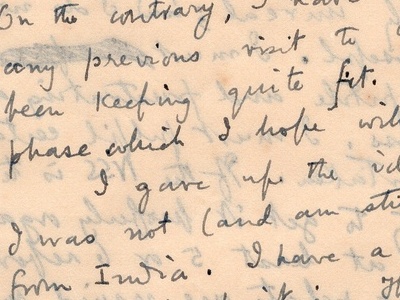 On the contrary, I have
any previous visit to
been keeping quite fit.
phase which I hope will
I gave up the
I was not (and am
from India. I have a